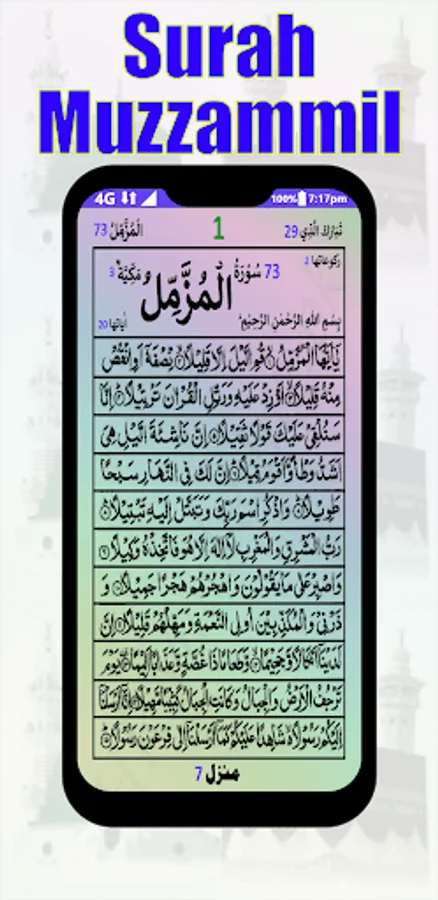 Surah
Muzzammil
4G 100% 7:17pm
تَبَارَكَ الَّذِي 29 1 الْمُزَّمِّلُ 73
رکوعاتها 2
73 سُوْرَةُ الْمُزَّمِّلُ مَكِّيَّةٌ 3
بِسْمِ اللهِ الرَّحْمٰنِ الرَّحِيْمِ اٰياتها 20
يٰۤاَيُّهَا الْمُزَّمِّلُ ۙ قُمِ الَّيْلَ اِلَّا قَلِيْلًا ۙ نِّصْفَهٗۤ اَوِ انْقُصْ
مِنْهُ قَلِيْلًا ۙ اَوْ زِدْ عَلَيْهِ وَرَتِّلِ الْقُرْاٰنَ تَرْتِيْلًا ؕ اِنَّا
سَنُلْقِيْ عَلَيْكَ قَوْلًا ثَقِيْلًا اِنَّ نَاشِئَةَ الَّيْلِ هِيَ
اَشَدُّ وَطْاً وَّاَقْوَمُ قِيْلًا ؕ اِنَّ لَكَ فِي النَّهَارِ سَبْحًا
طَوِيْلًا ؕ وَاذْكُرِ اسْمَ رَبِّكَ وَتَبَتَّلْ اِلَيْهِ تَبْتِيْلًا ؕ
رَبُّ الْمَشْرِقِ وَالْمَغْرِبِ لَاۤ اِلٰهَ اِلَّا هُوَ فَاتَّخِذْهُ وَكِيْلًا
وَاصْبِرْ عَلٰى مَا يَقُوْلُوْنَ وَاهْجُرْهُمْ هَجْرًا جَمِيْلًا وَ
ذَرْنِيْ وَالْمُكَذِّبِيْنَ اُولِي النَّعْمَةِ وَمَهِّلْهُمْ قَلِيْلًا اِنَّ
لَدَيْنَاۤ اَنْكَالًا وَّجَحِيْمًا ۙ وَّطَعَامًا ذَا غُصَّةٍ وَّعَذَابًا اَلِيْمًا ۗ يَوْمَ
تَرْجُفُ الْاَرْضُ وَالْجِبَالُ وَكَانَتِ الْجِبَالُ كَثِيْبًا مَّهِيْلًا اِنَّاۤ اَرْسَلْنَاۤ
اِلَيْكُمْ رَسُوْلًا ۙ شَاهِدًا عَلَيْكُمْ كَمَاۤ اَرْسَلْنَاۤ اِلٰى فِرْعَوْنَ رَسُوْلًا ؕ
منزل 7